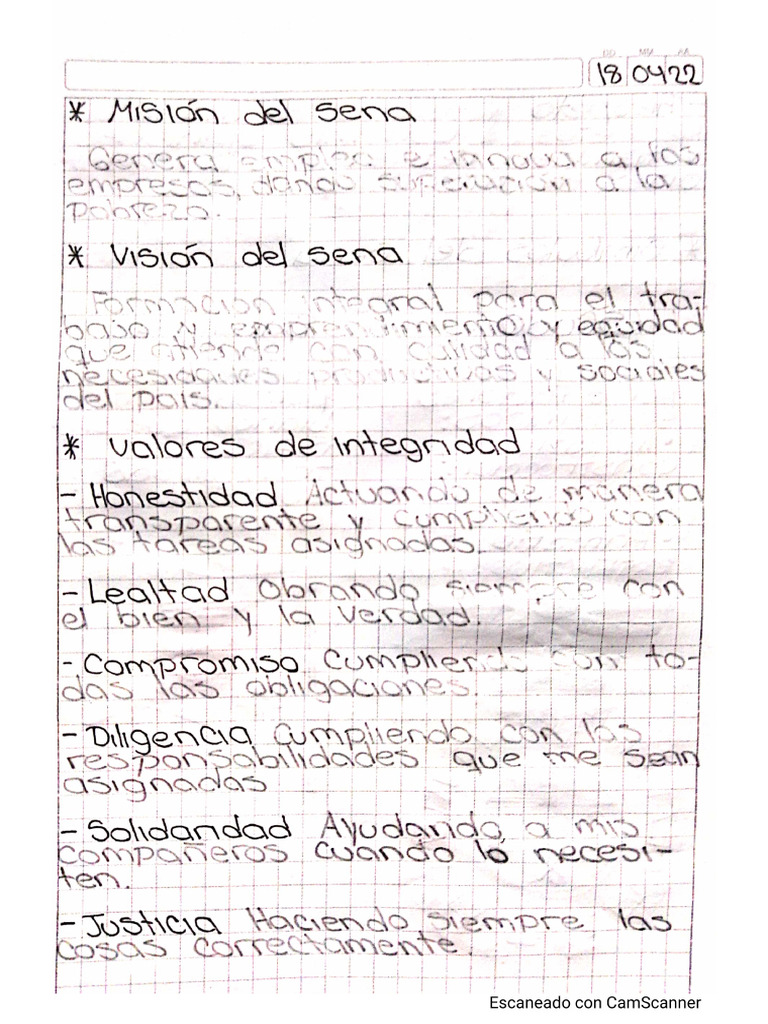 DD MM AA
18 04 22
* Misión del sena
Genera empleo e innova a los
empresas, dando superación a la
pobreza.
* Visión del sena
Formacion integral para el tra-
bajo y emprendimiento y equidad
que atiende con calidad a las
necesidades productivas y sociales
del pais.
* Valores de integridad
- Honestidad Actuando de manera
transparente y cumpliendo con
las tareas asignadas.
- Lealtad Obrando siempre con
el bien y la verdad.
- Compromiso Cumpliendo con to-
das las obligaciones.
- Diligencia Cumpliendo con las
responsabilidades que me sean
asignadas
- Solidaridad Ayudando a mis
compañeros cuando lo necesi-
ten.
- Justicia Haciendo siempre las
cosas correctamente.
Escaneado con CamScanner